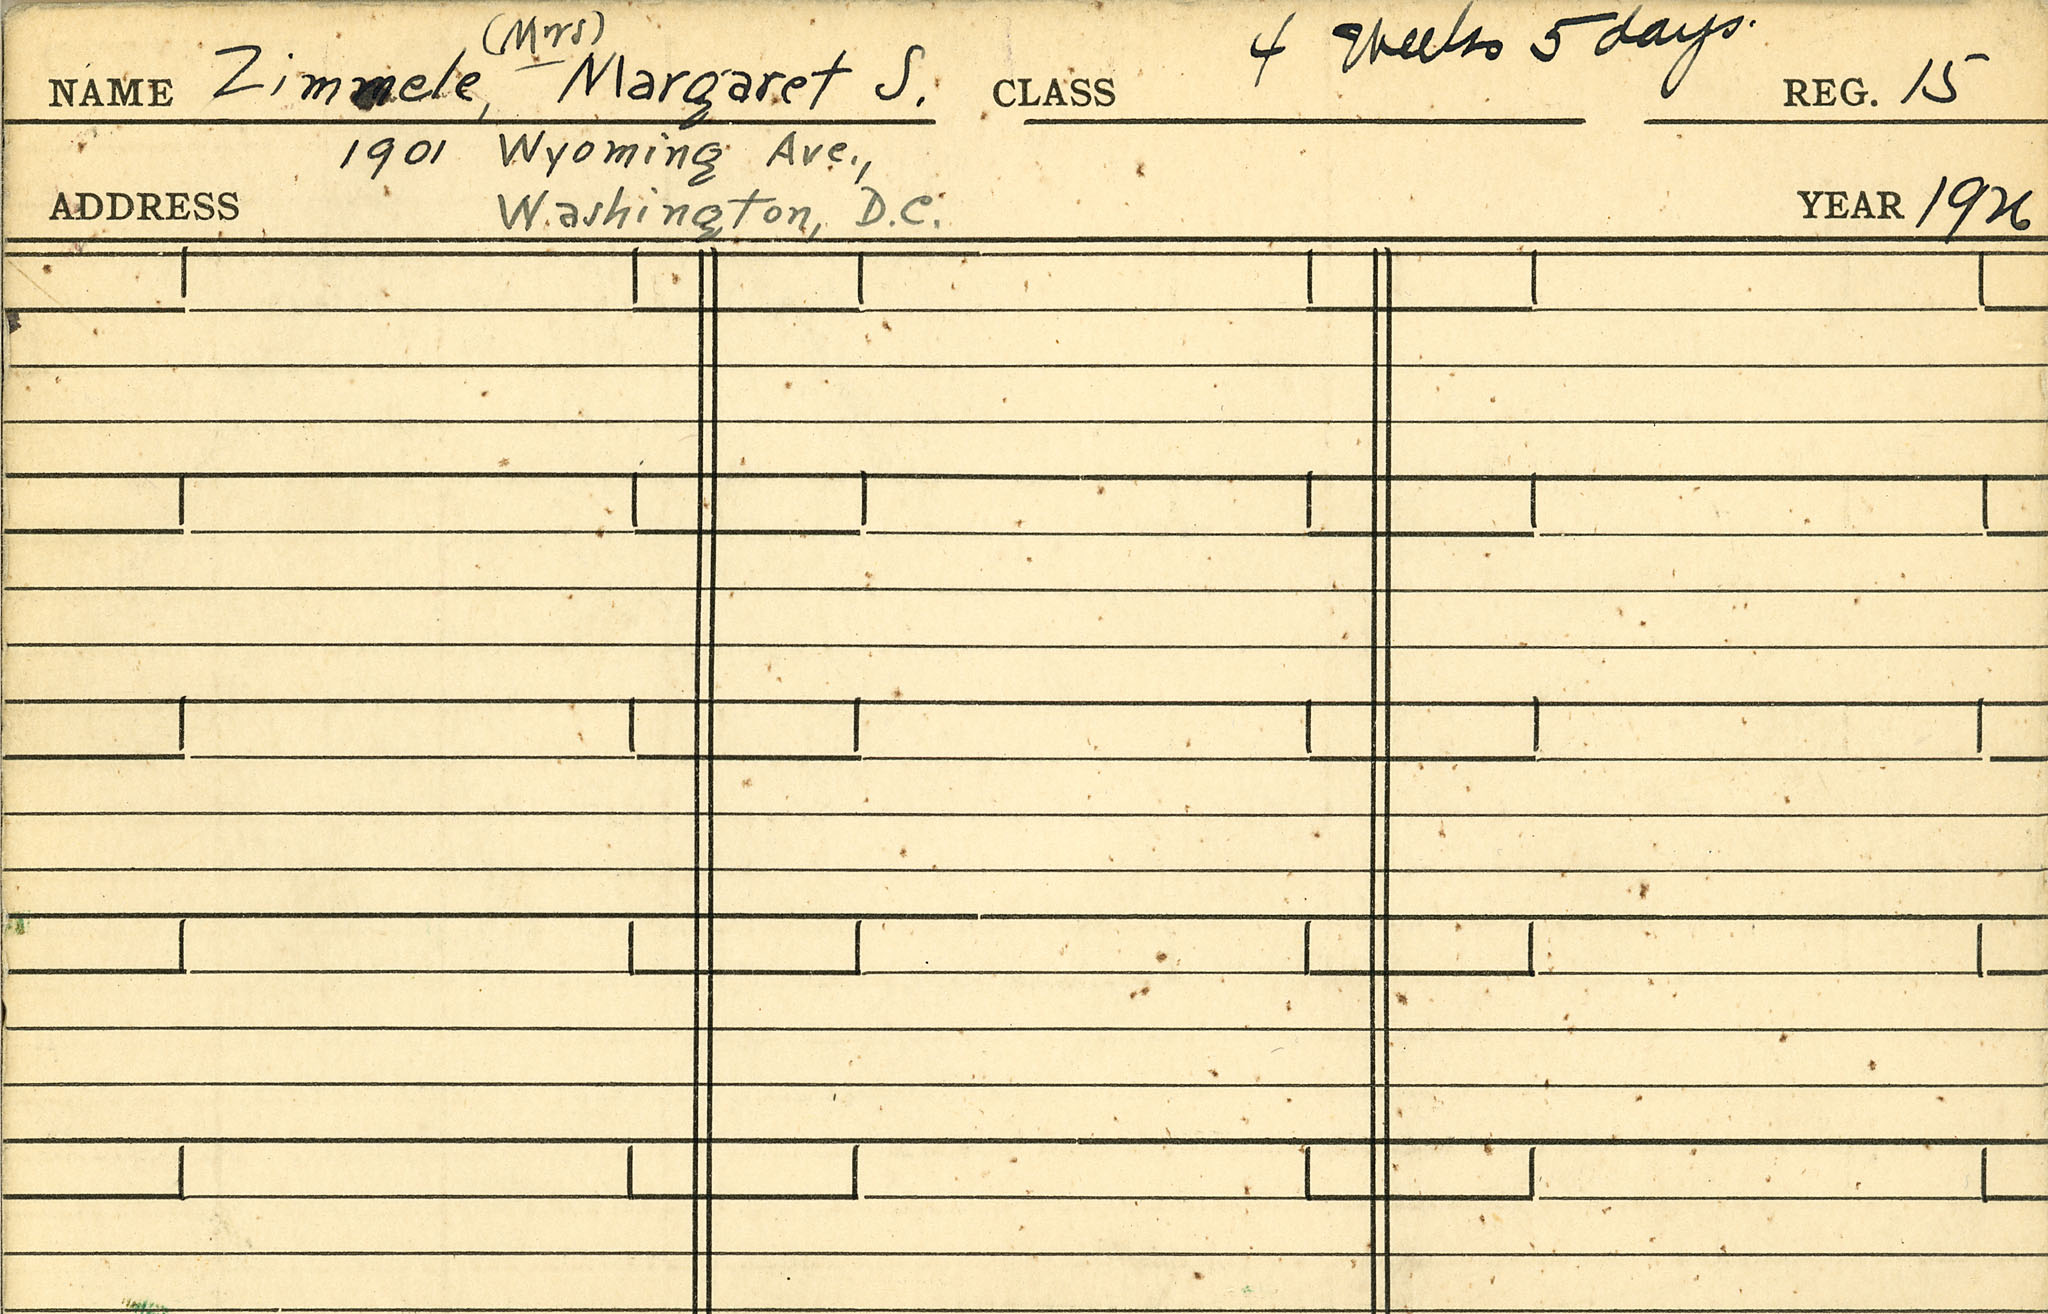 NAME Zimmele, (Mrs) Margaret S. CLASS 4 Weeks 5 days. REG. 15
1901 Wyoming Ave.,
ADDRESS Washington, D.C. YEAR 1926